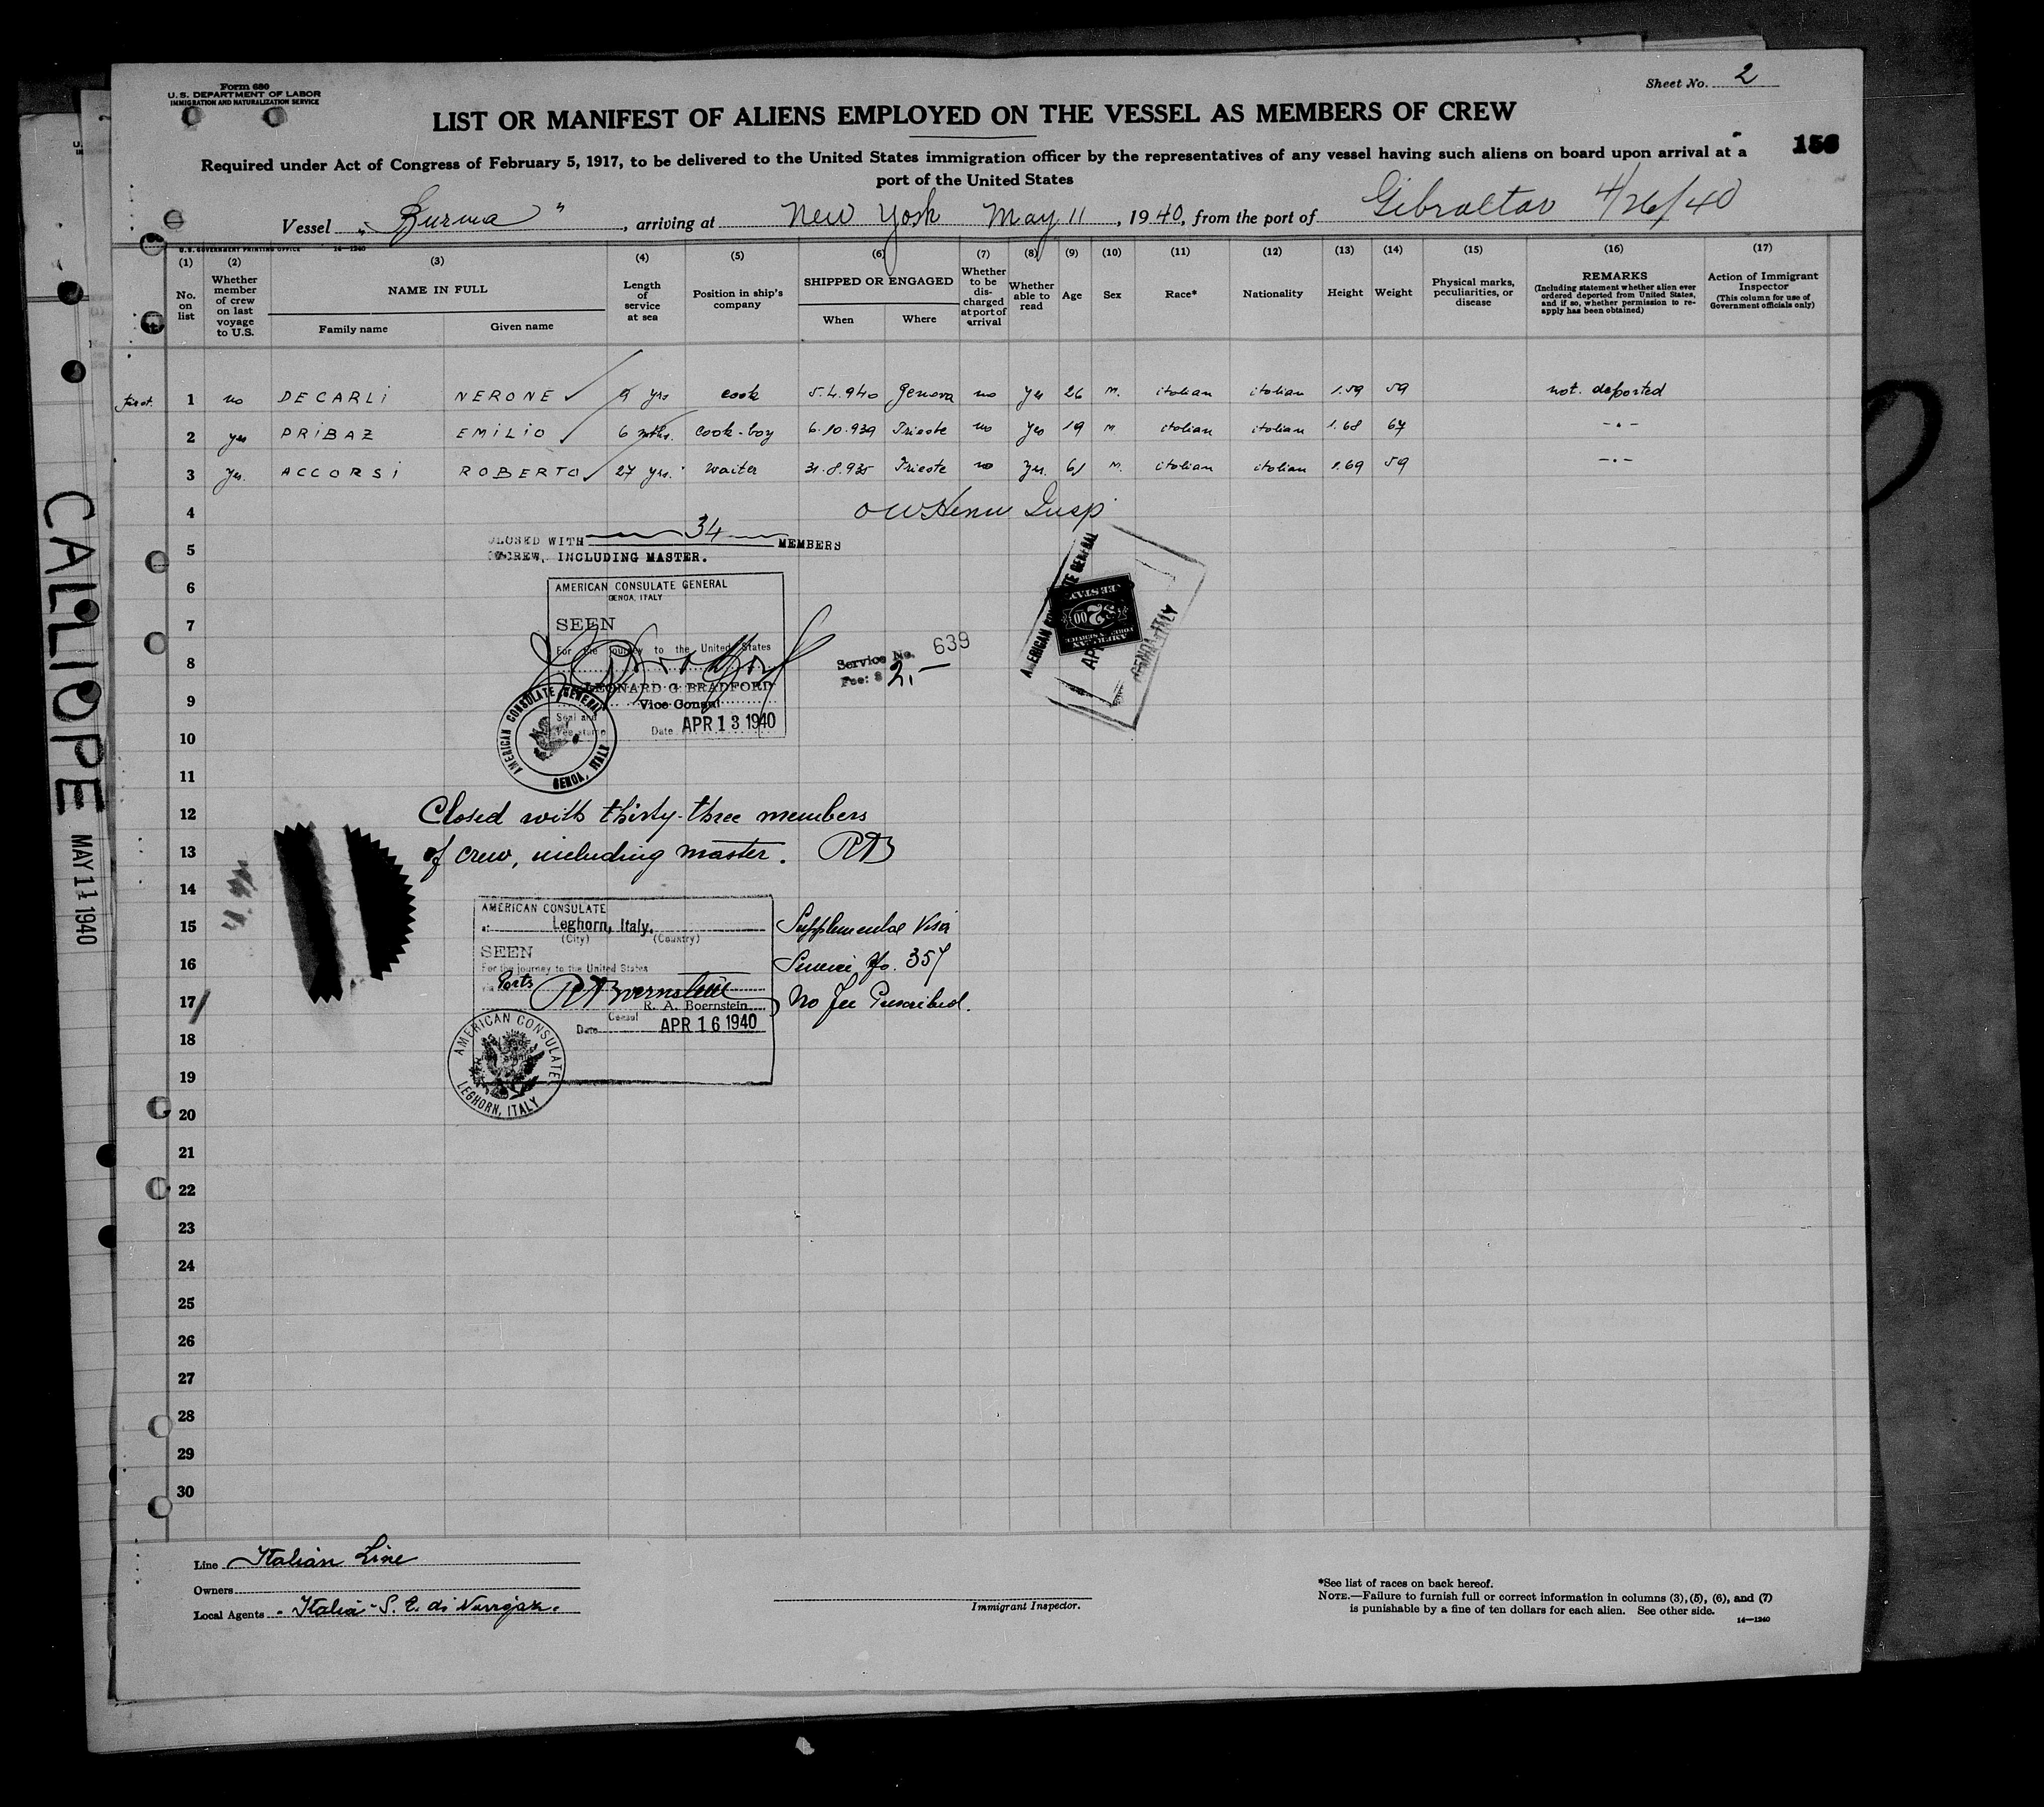 Form 680
U. S. DEPARTMENT OF LABOR
IMMIGRATION AND NATURALIZATION SERVICE
Sheet No. 2
LIST OR MANIFEST OF ALIENS EMPLOYED ON THE VESSEL AS MEMBERS OF CREW
156
Required under Act of Congress of February 5, 1917, to be delivered to the United States immigration officer by the representatives of any vessel having such aliens on board upon arrival at a
port of the United States
Vessel "Burma", arriving at New York May 11, 1940, from the port of Gibraltar 4/26/40
U.S. GOVERNMENT PRINTING OFFICE 14—1240
(1) (2) (3) (4) (5) (6) (7) (8) (9) (10) (11) (12) (13) (14) (15) (16) (17)
No. on list
Whether member of crew on last voyage to U.S.
NAME IN FULL
Family name
Given name
Length of service at sea
Position in ship's company
SHIPPED OR ENGAGED
When
Where
Whether to be discharged at port of arrival
Whether able to read
Age
Sex
Race*
Nationality
Height
Weight
Physical marks, peculiarities, or disease
REMARKS
(Including statement whether alien ever ordered deported from United States, and if so, whether permission to re-apply has been obtained)
Action of Immigrant Inspector
(This column for use of Government officials only)
first. 1 no DECARLI NERONE 9 yrs cook 5.4.940 Genova no yes 26 M. italian italian 1.59 59 not deported
2 yes PRIBAZ EMILIO 6 mths. cook-boy 6.10.939 Trieste no yes 19 M italian italian 1.68 67 -"-
3 yes. ACCORSI ROBERTO 27 yrs. waiter 31.8.935 Trieste no yes. 61 M. italian italian 1.69 59 -"-
4
Insp
5
CLOSED WITH 34 MEMBERS
OF CREW, INCLUDING MASTER.
6
AMERICAN CONSULATE GENERAL
GENOA, ITALY
7
SEEN
8
For the journey to the United States
Service No. 639
Fee: $ 2,—
LEONARD G. BRADFORD
9
Vice Consul
Seal and
Fee stamp
Date APR 13 1940
10
AMERICAN CONSULATE GENERAL
GENOA, ITALY
AMERICAN CONSULATE GENERAL
GENOA-ITALY
AMERICAN
FOREIGN SERVICE
$2 00
FEE STAMP
APR
11
12
Closed with thirty-three members
13
of crew, including master. RAB
14
15
AMERICAN CONSULATE
at Leghorn, Italy.
(City) (Country)
Supplemental Visa
16
SEEN
For the journey to the United States
Service No. 357
17
R A Boernstein
R. A. Boernstein
No fee Prescribed.
Consul
18
Date APR 16 1940
19
AMERICAN CONSULATE
LEGHORN, ITALY
20
21
22
23
24
25
26
27
28
29
30
Line Italian Line
Owners
Local Agents "Italia" S. A. di Navigaz.
Immigrant Inspector.
*See list of races on back hereof.
NOTE.—Failure to furnish full or correct information in columns (3), (5), (6), and (7)
is punishable by a fine of ten dollars for each alien. See other side.
14—1240
CALLIOPE MAY 11 1940